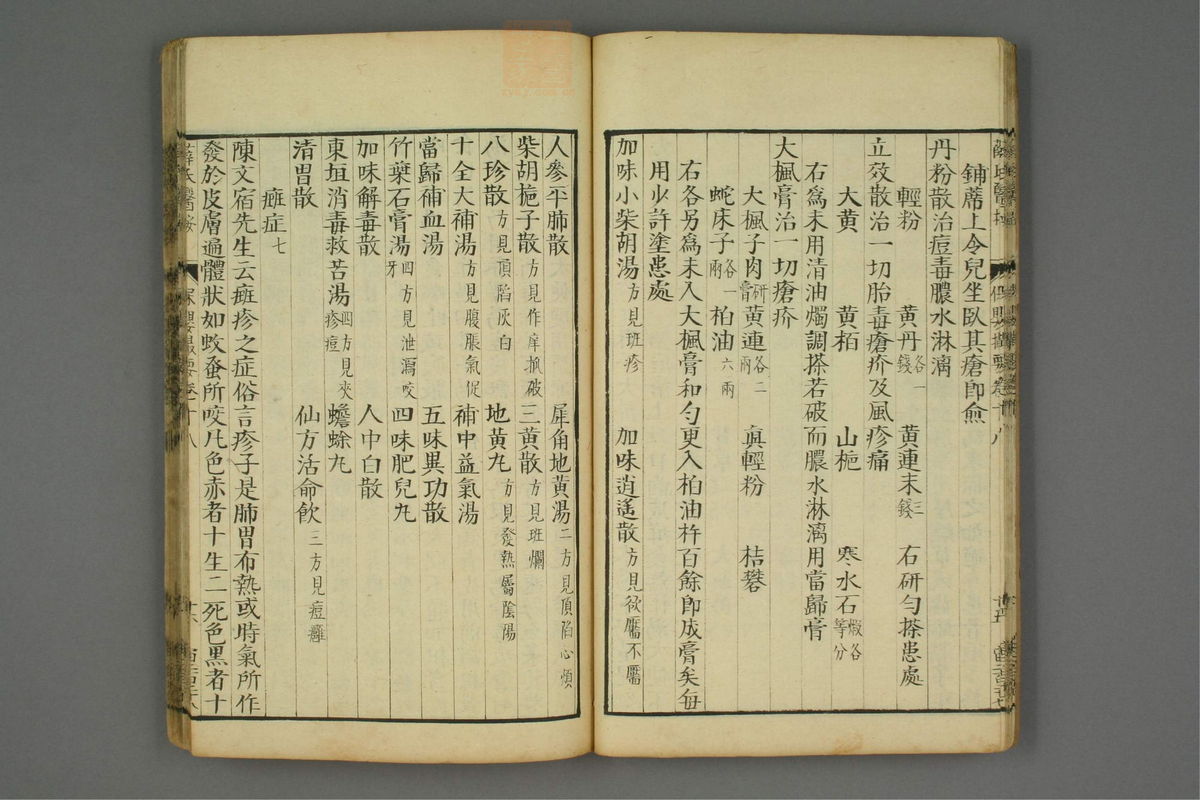 鋪蓆上令兒坐臥其瘡即愈
丹粉散治痘毒膿水淋漓
輕粉 黄丹各一錢 黄連末三錢 右研勻搽患處
立效散治一切胎毒瘡疥及風疹痛
大黄 黄栢 山梔 寒水石煅各等分
右為末用清油燭調搽若破而膿水淋漓用當歸膏
大楓膏治一切瘡疥
大楓子肉研膏 黄連各二兩 真輕粉 枯礬
蛇床子各一兩 柏油六兩
右各另為末入大楓膏和勻更入柏油杵百餘即成膏矣每
用少許塗患處
加味小柴胡湯方見班疹 加味逍遙散方見欲靨不靨
人參平肺散 犀角地黄湯二方見頂陷心煩
柴胡梔子散方見作痒抓破 三黄散方見班爛
八珍散方見頂陷灰白 地黄丸方見發熱屬陰陽
十全大補湯方見腹脹氣促 補中益氣湯
當歸補血湯 五味異功散
竹葉石膏湯四方見泄瀉咬牙 四味肥兒丸
加味解毒散 人中白散
東垣消毒救苦湯四方見夾疹痘 蟾蜍丸
清胃散 仙方活命飲三方見痘癰
㿀症七
陳文宿先生云㿀疹之症俗言疹子是肺胃布熱或時氣所作
發於皮膚遍體狀如蚊蚤所咬凡色赤者十生二死色黑者十
薛氏醫按
保嬰撮要卷十八